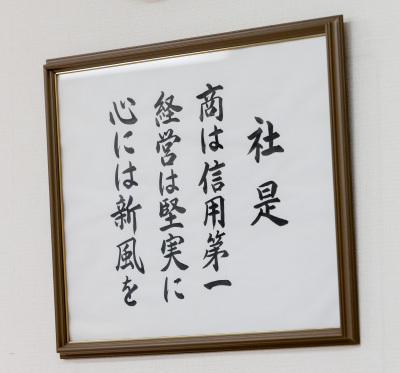 社是
商は信用第一
経営は堅実に
心には新風を